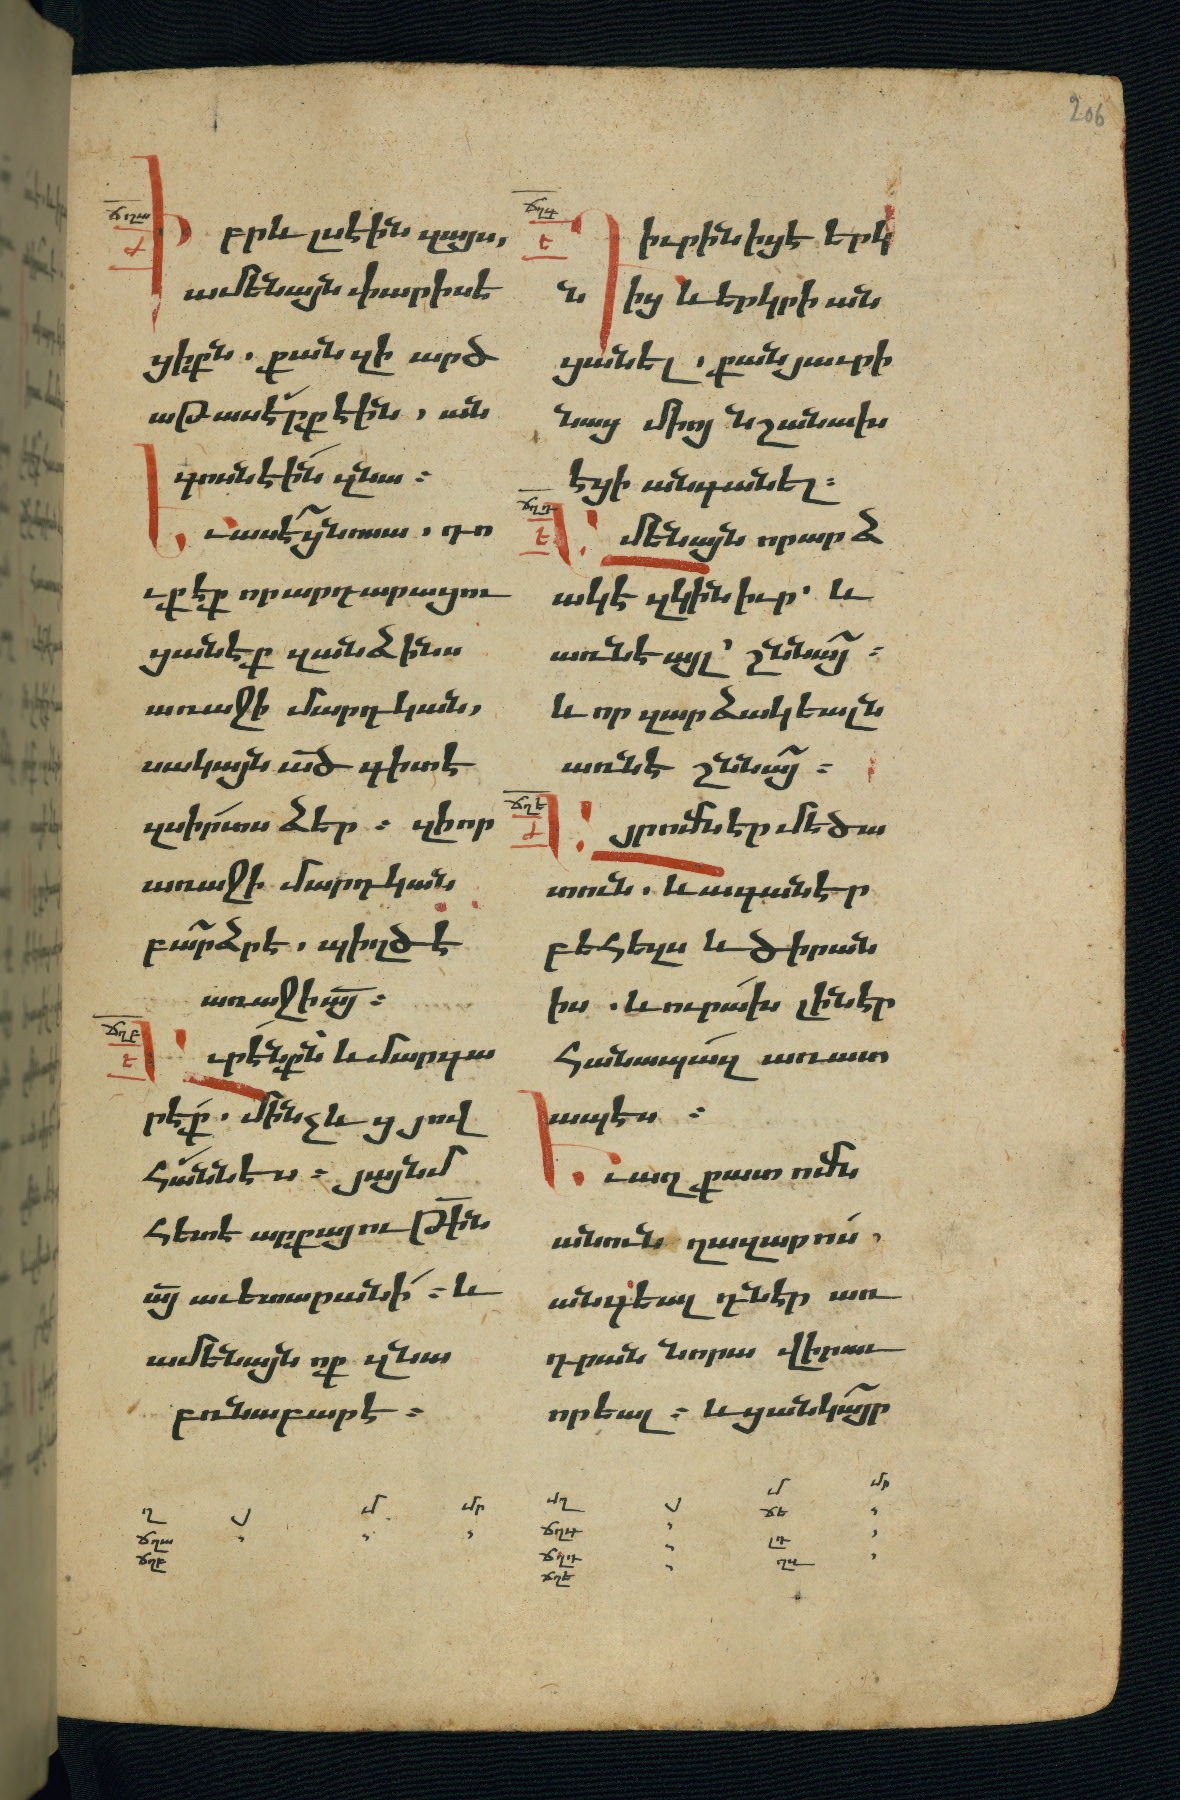 206
ճղա
ժ
Իբրև լսէին զայս,
ամենայն փարիսե
ցիքն. քանզի արծ
աթասէրքէին, ան
գոսնէին զնա։
Եւ ասէ ցնոսա. դո
ւքէք որ արդարացու
ցանէք զանձինս
առաջի մարդկան,
սակայն ած գիտէ
զսիրտս ձեր։ զի որ
առաջի մարդկան
բարձր է, պիղծ է
առաջի այ։
ճղբ
է
Աւրէնքն և մարգա
րէք. մինչև ցյով
հաննէս։ յայնմ
հետէ արքայութին
այ աւետարանի։ և
ամենայն ոք զնա
բռնաբարէ։
ղ վ մ մր
ճղա
ճղբ
ճղգ
է
Դիւրին իցէ երկ
նից և երկրի ան
ցանել, քան յաւրի
նաց միոյ նշանախ
եցի անգանել։
ճղդ
է
Ամենայն որ արձ
ակէ զկին իւր՝ և
առնէ այլ՝ շննայ։
և որ զարձակեալն
առնէ շննայ։
ճղե
ժ
Այր ոմն էր մեծա
տուն. և ագանէր
բեհեզս և ծիրան
իս. և ուրախ լինէր
հանապազ առատ
ապէս։
Եւ աղքատ ոմն
անուն ղազարոս,
անգեալ դնէր առ
դրան նորա վիրաւ
որեալ։ և ցանկայր
մղ վ մ մր
ճղգ ճե
ճղդ լդ
ճղե